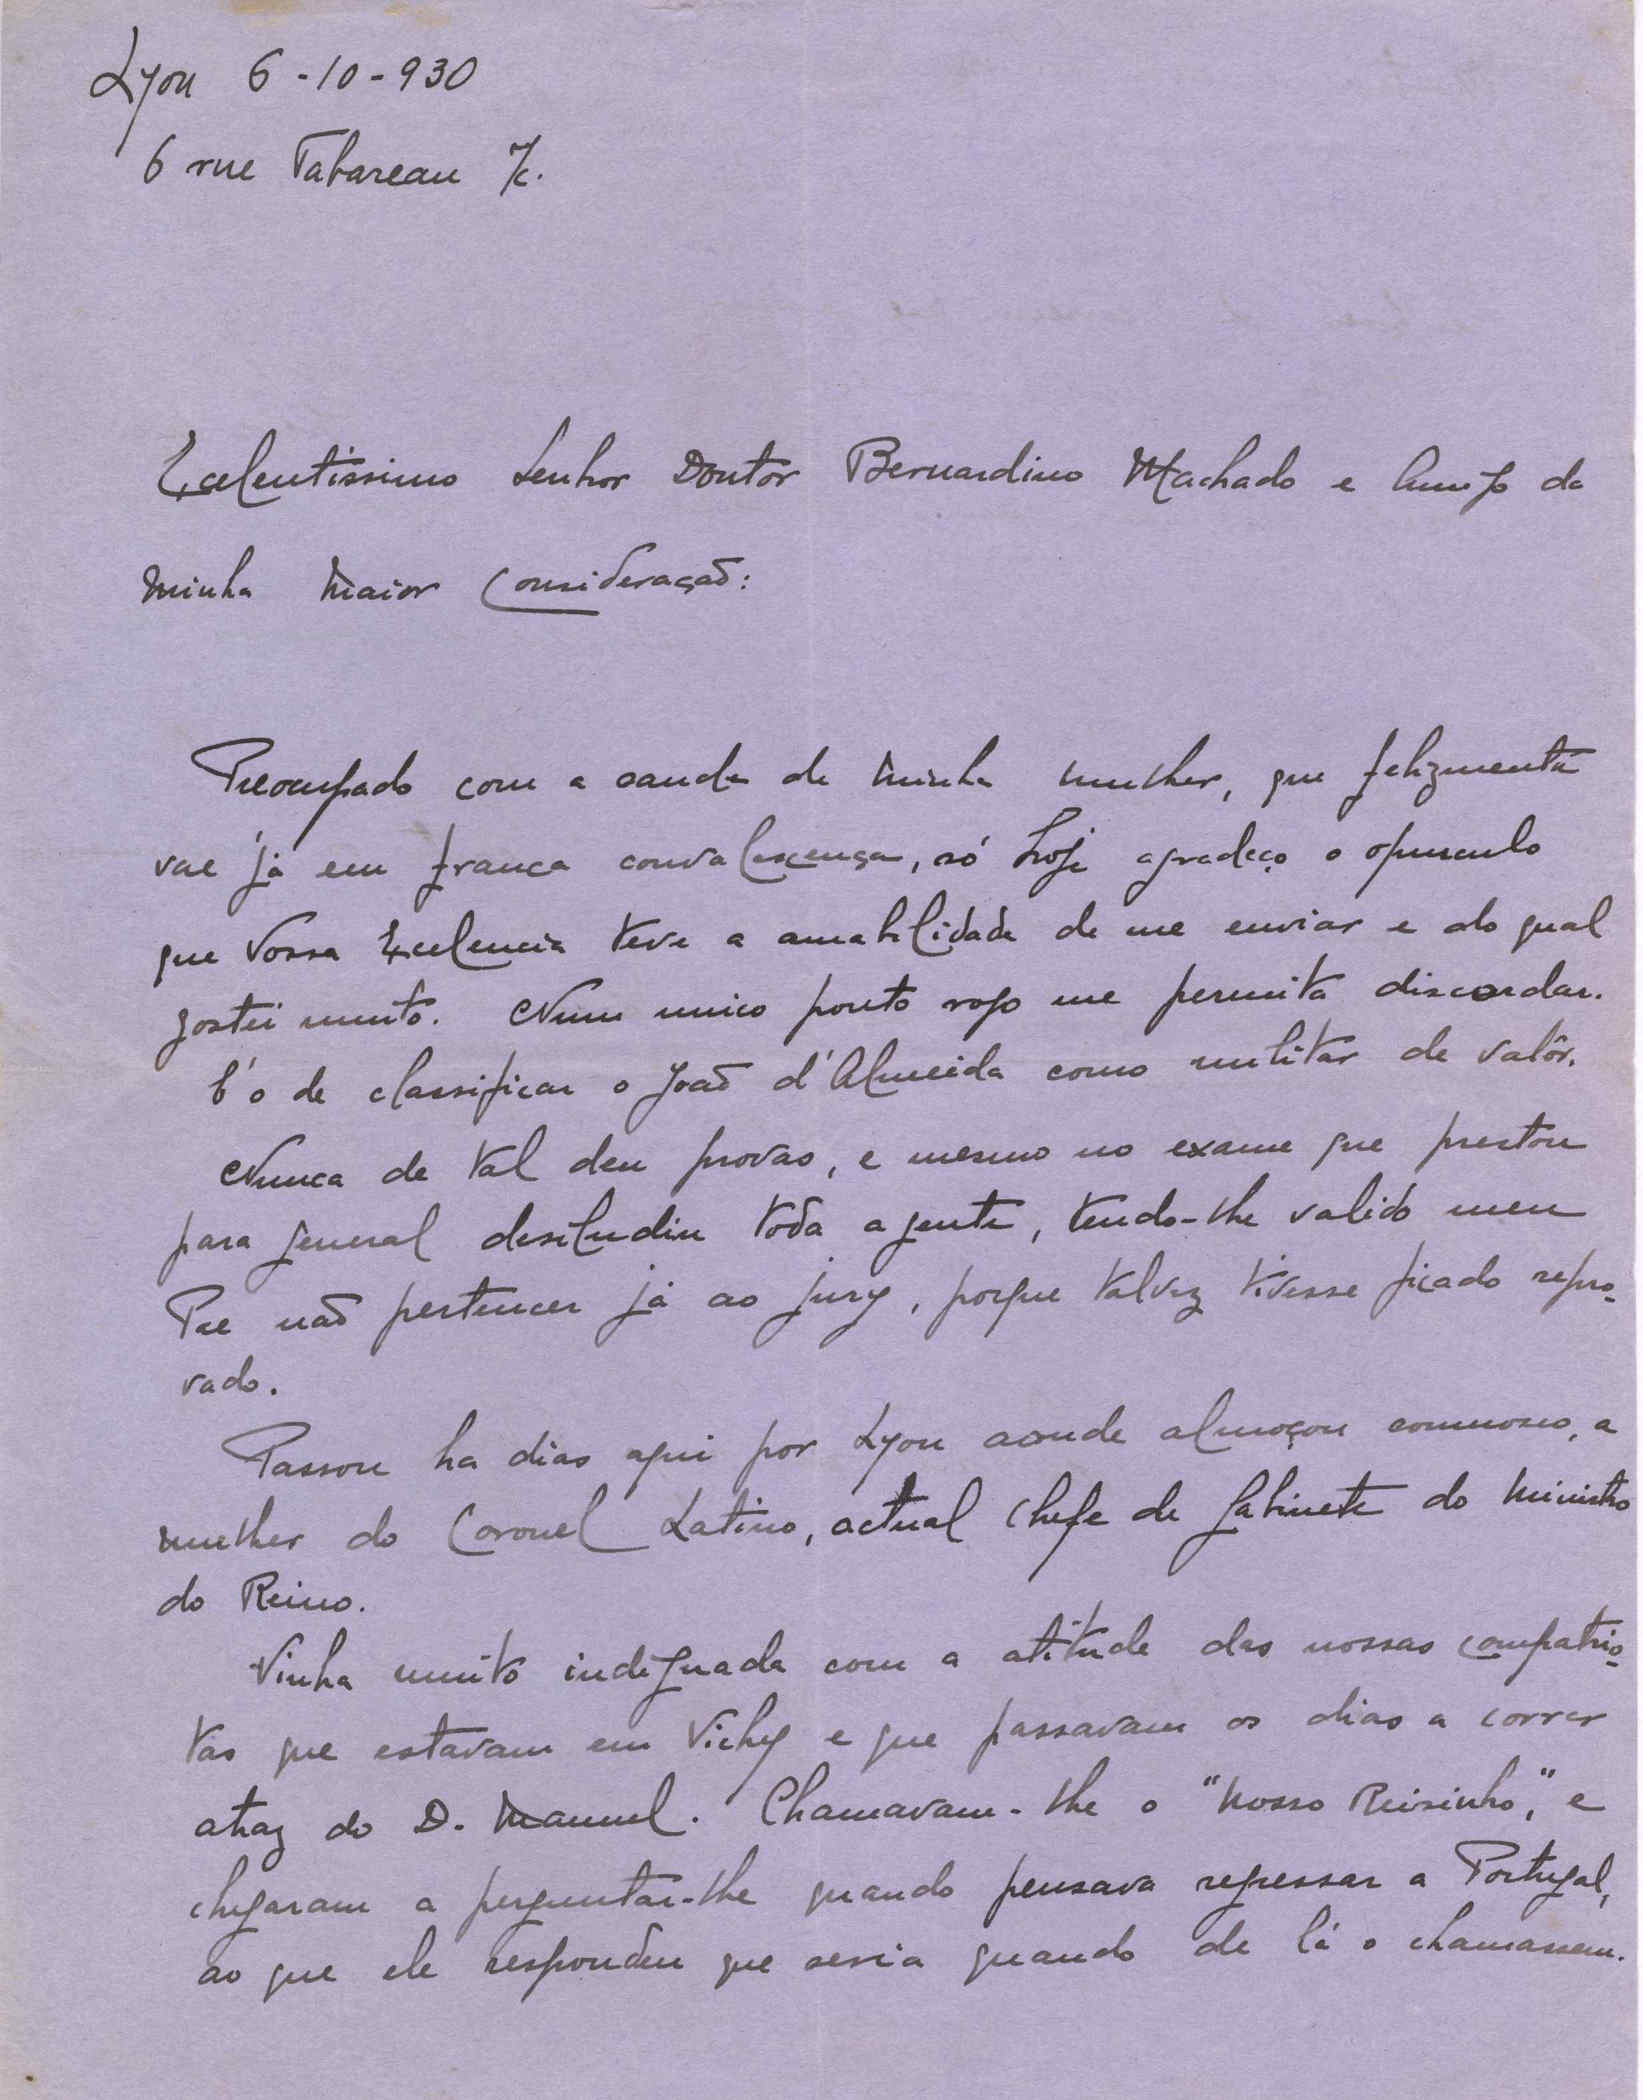 Lyon 6-10-930
6 rue Tabareau
Excelentissimo Senhor Doutor Bernardino Machado e Amigo da
minha maior Consideração:
Preocupado com a saude de minha mulher, que felizmente
vae já em franca convalescença, só hoje agradeço o opusculo
que Vossa Excelencia teve a amabilidade de me enviar e do qual
gostei muito. Num unico ponto rogo me permita discordar.
E' o de classificar o João d'Almeida como militar de valôr.
Nunca de tal deu provas, e mesmo no exame que prestou
para general desiludiu toda a gente, tendo-lhe valido meu
Pae não pertencer já ao jury, porque talvez tivesse ficado repro-
vado.
Passou ha dias aqui por Lyon aonde almoçou comnosco, a
mulher do Coronel Latino, actual chefe de gabinete do ministro
do Reino.
Vinha muito indignada com a atitude das nossas compatrio-
tas que estavam em Vichy e que passavam os dias a correr
atraz do D. Manuel. Chamavam-lhe o "nosso Reisinho", e
chegaram a perguntar-lhe quando pensava regressar a Portugal,
ao que ele respondeu que seria quando de lá o chamassem.